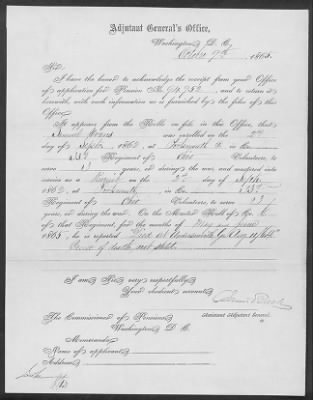 Adjutant General's Office,
Washington, D. C.,
October 9th, 1865.
Sir:
I have the honor to acknowledge the receipt from your Office
of application for Pension No. 94,752, and to return it
herewith, with such information as is furnished by the files of this
Office.
It appears from the Rolls on file in this Office, that
was enrolled on the 2nd
day of Sept., 1862, at Portsmouth O. in Co.
Regiment of Ohio Volunteers, to
serve 3 years, or during the war, and mustered into
service as a on the 2nd day of Sept.,
1862, at Portsmouth, in Co.
Regiment of Ohio Volunteers, to serve 3
years, or during the war. On the Muster Roll of Co.
of that Regiment, for the months of May and June,
1865, he is reported Died at Andersonville Ga. Aug
Cause of death not stated.
I am, Sir, very respectfully,
Your obedient servant,
Assistant Adjutant General.
The Commissioner of Pensions,
Washington, D. C.
Memoranda:
Name of applicant
Address,